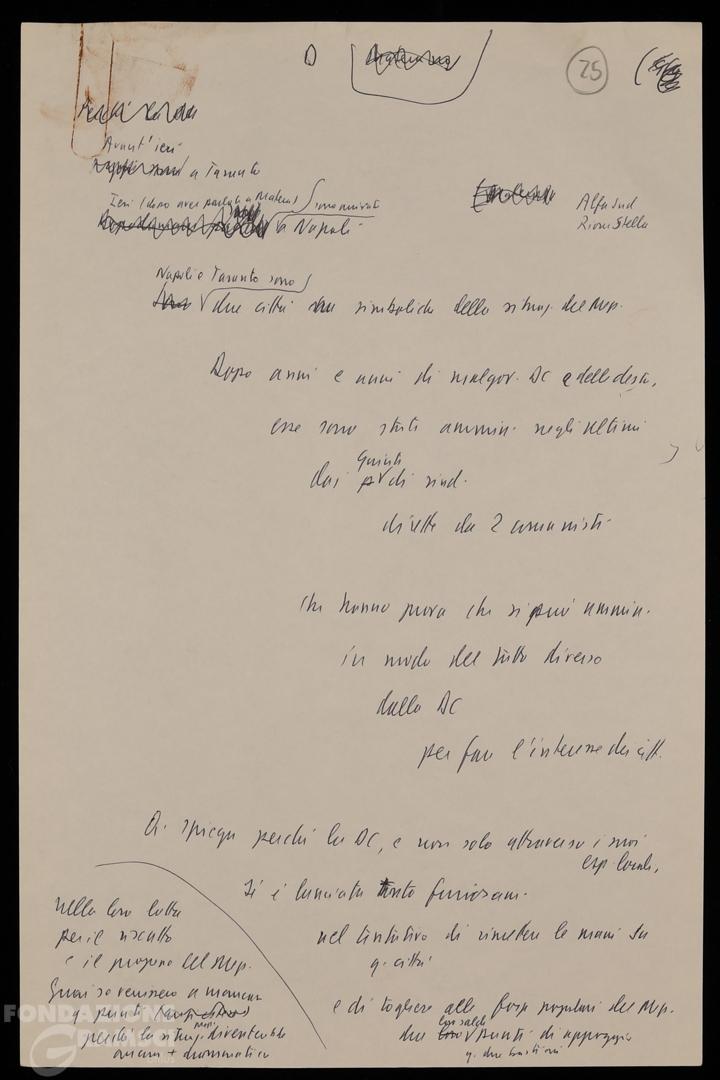 D
25
Avant'ieri
a Taranto
Ieri (dopo aver parlato a Matera) sono arrivato
a Napoli
Alfasud
Rione Stella
Napoli e Taranto sono
due città simboliche della situaz. del Mzg.
Dopo anni e anni di malgov. DC e delle destre,
esse sono state ammin. negli ultimi
dai
di sind.
dirette da 2 comunisti
che hanno prova che si può ammin.
in modo del tutto diverso
dalla DC
per fare l'interesse dei citt.
Qi. spiega perché la DC, e non solo attraverso i suoi
esp. locali,
si è lanciata tanto furiosam.
nel tentativo di rimettere le mani su
q. città
e di togliere alle forze popolari del Mzg.
due saldi punti di appoggio
q. due bastioni
nella loro lotta
per il riscatto
e il progresso del Mzg.
Guai se venissero a mancare
q. punti
perché la situaz. diventerebbe
ancora + drammatica
FONDAZIONE
GRAMSCI